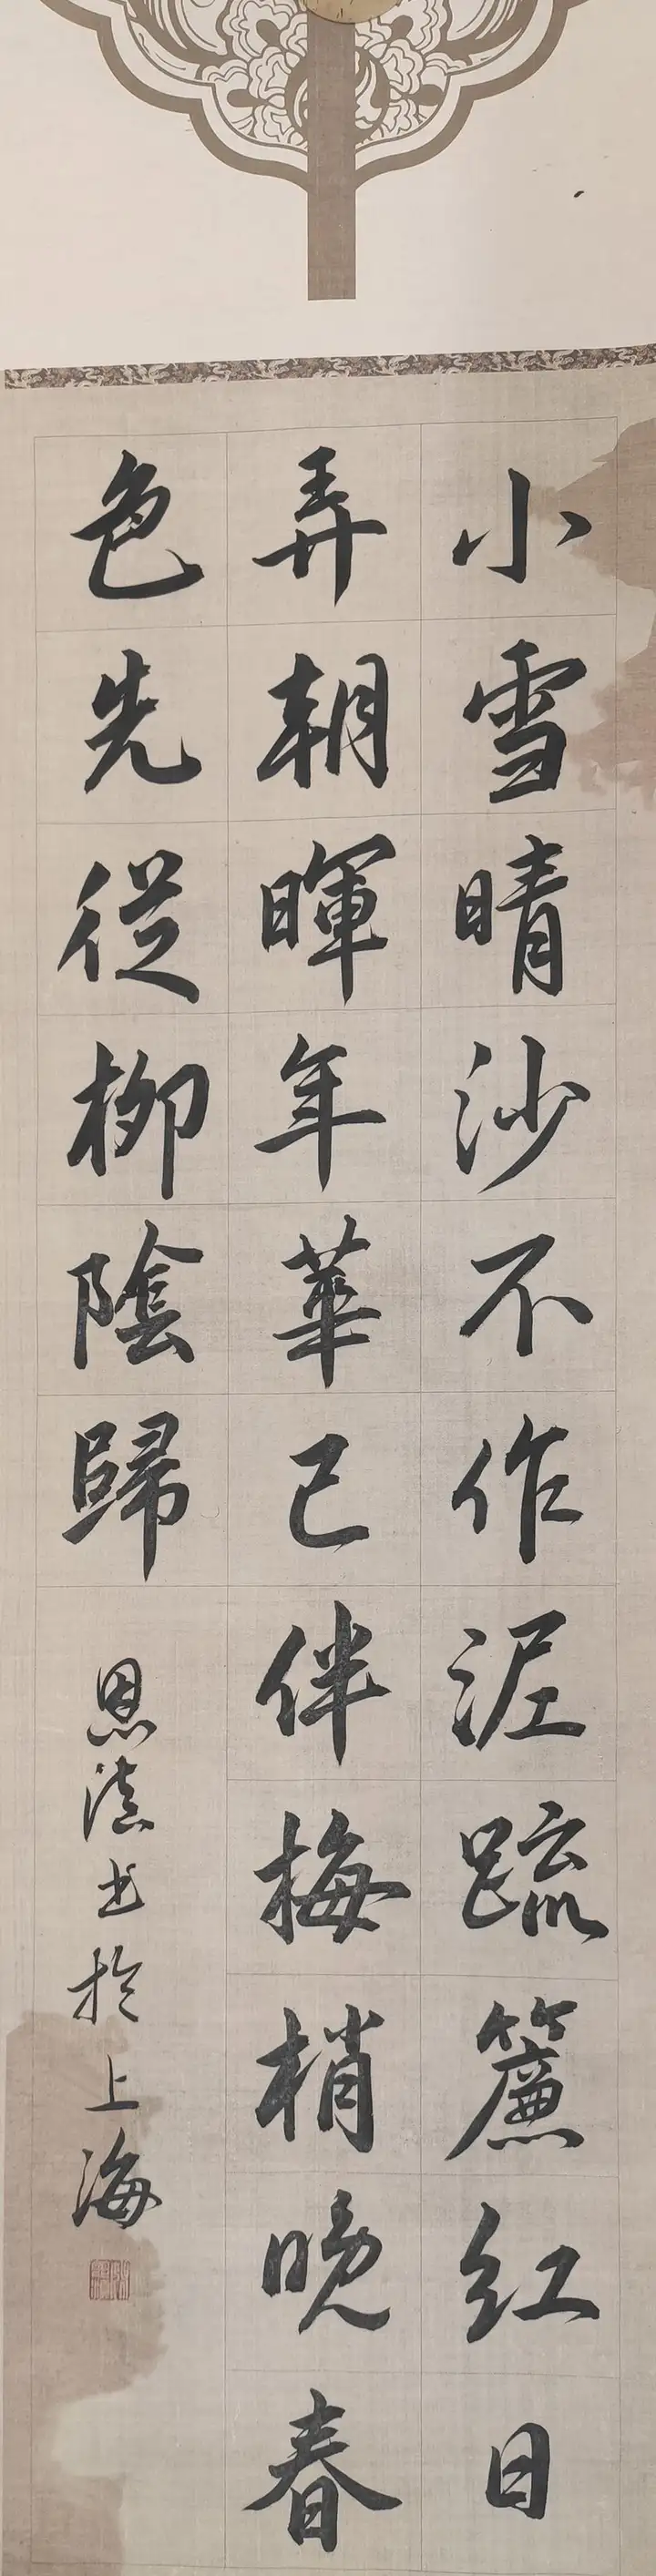 小雪晴沙不作泥疏簾紅日
弄朝暉年華已伴梅梢晚春
色先從柳陰歸
恩法书於上海